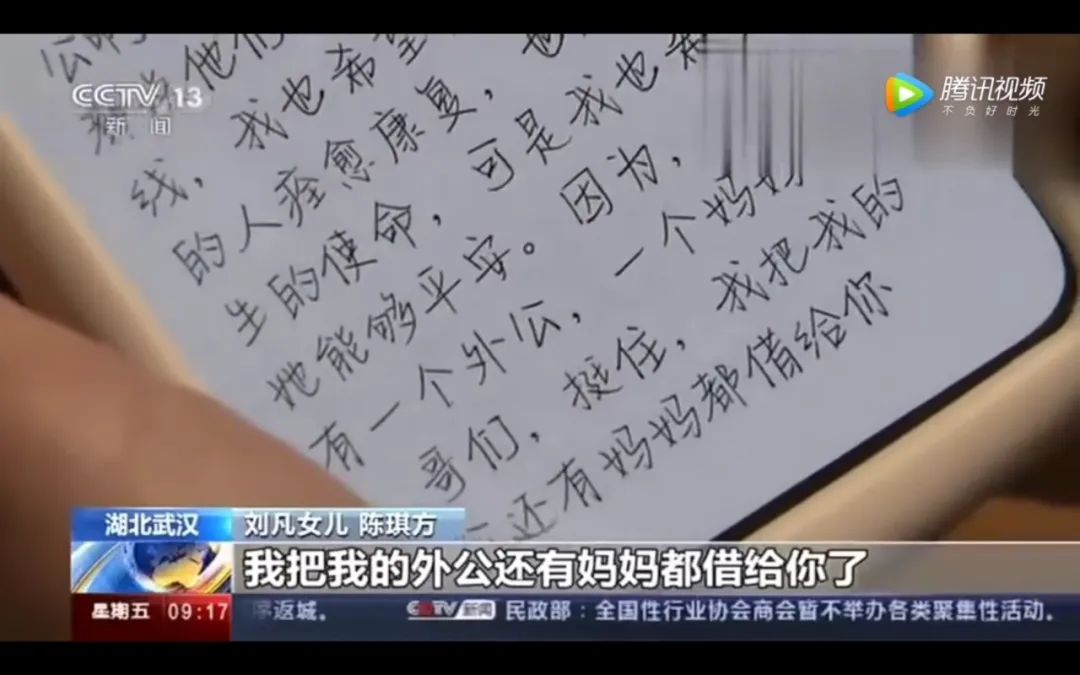 CCTV 13
新闻
腾讯视频
不负好时光
他们
线，我也希望
的人痊愈康复，也
生的使命，可是我也希
她能够平安。因为，
有一个外公，一个妈妈
哥们，挺住，我把我的
还有妈妈都借给你
湖北武汉
刘凡女儿 陈琪方
我把我的外公还有妈妈都借给你了
星期五 09:17
序返城。 CCTV新闻 民政部：全国性行业协会商会暂不举办各类聚集性活动。